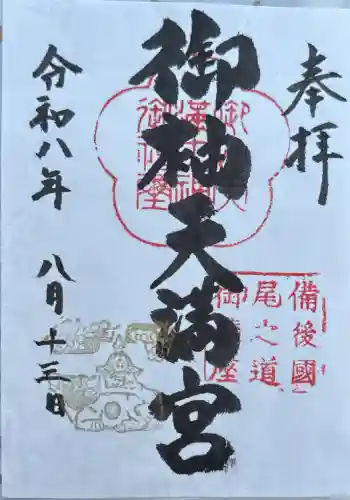 奉拝
御袖天満宮
令和八年 八月十三日
備後國
尾之道